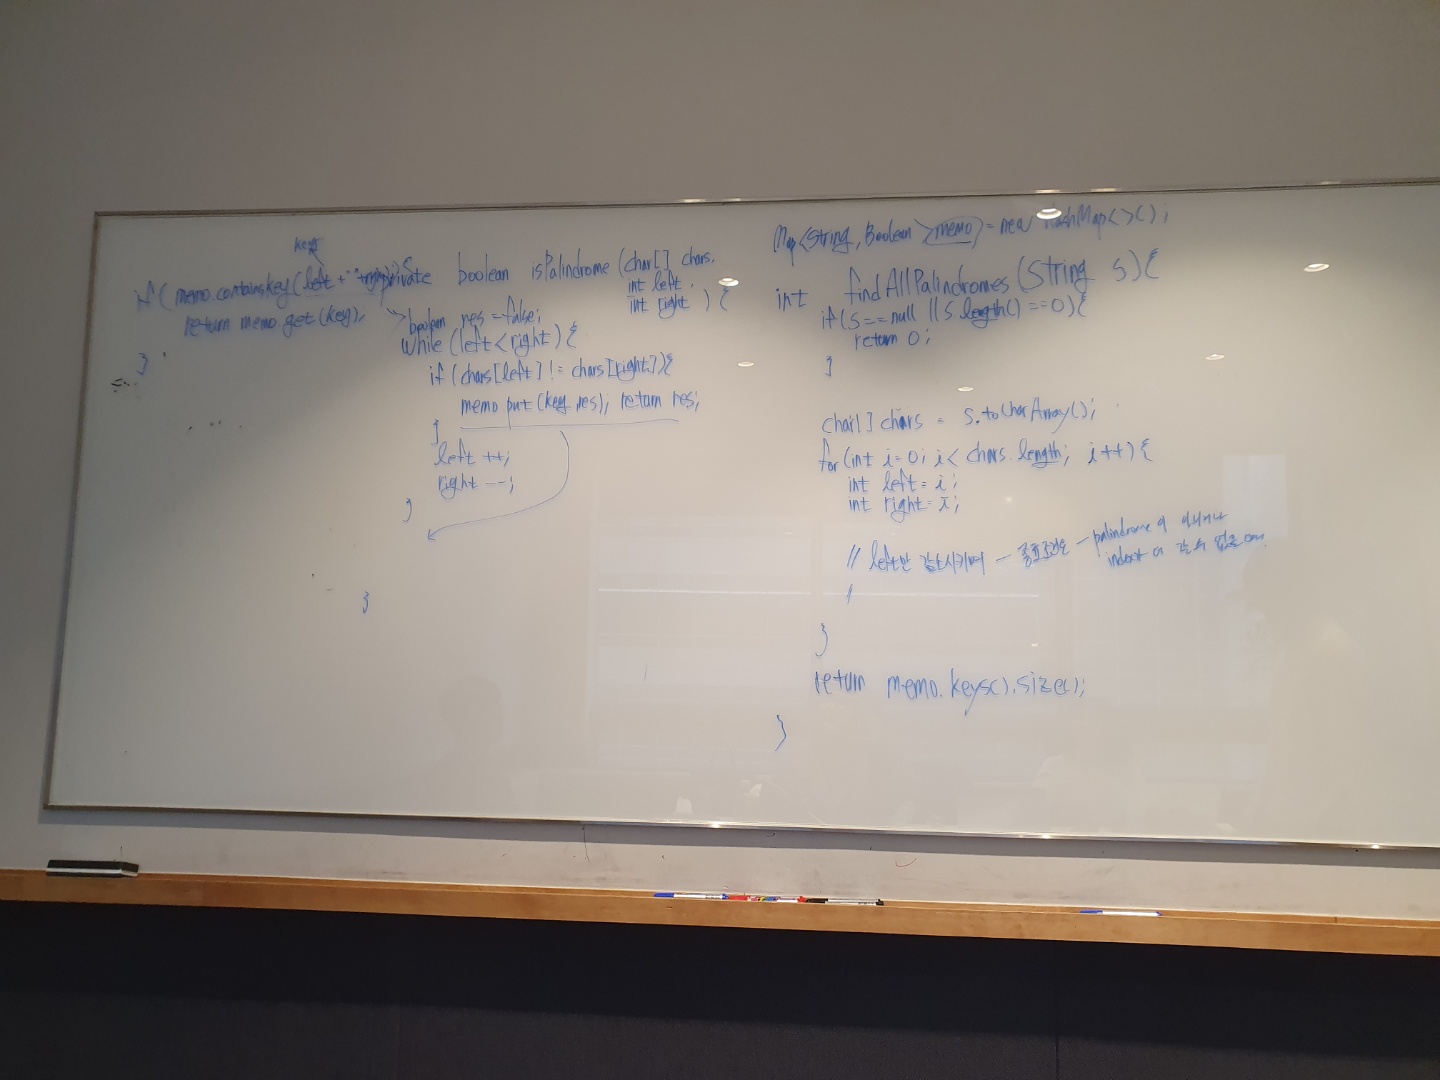 key
if (memo.containsKey(left + " "
return memo.get(key);
}
private boolean isPalindrome (char[] chars,
int left,
int right ) {
boolean res = false;
while (left < right) {
if (chars[left] != chars[right]){
memo.put(key, res); return res;
}
left ++;
right --;
}
}
Map<String, Boolean > memo = new HashMap<>();
int findAllPalindromes (String s) {
if (s == null || s.length() == 0) {
return 0;
}
char[] chars = s.toCharArray();
for (int i = 0; i < chars.length; i++) {
int left = i;
int right = i;
// left만 감소시키며 — 종료조건은 — palindrome이
index 없을 때
}
return memo.keys().size();
}